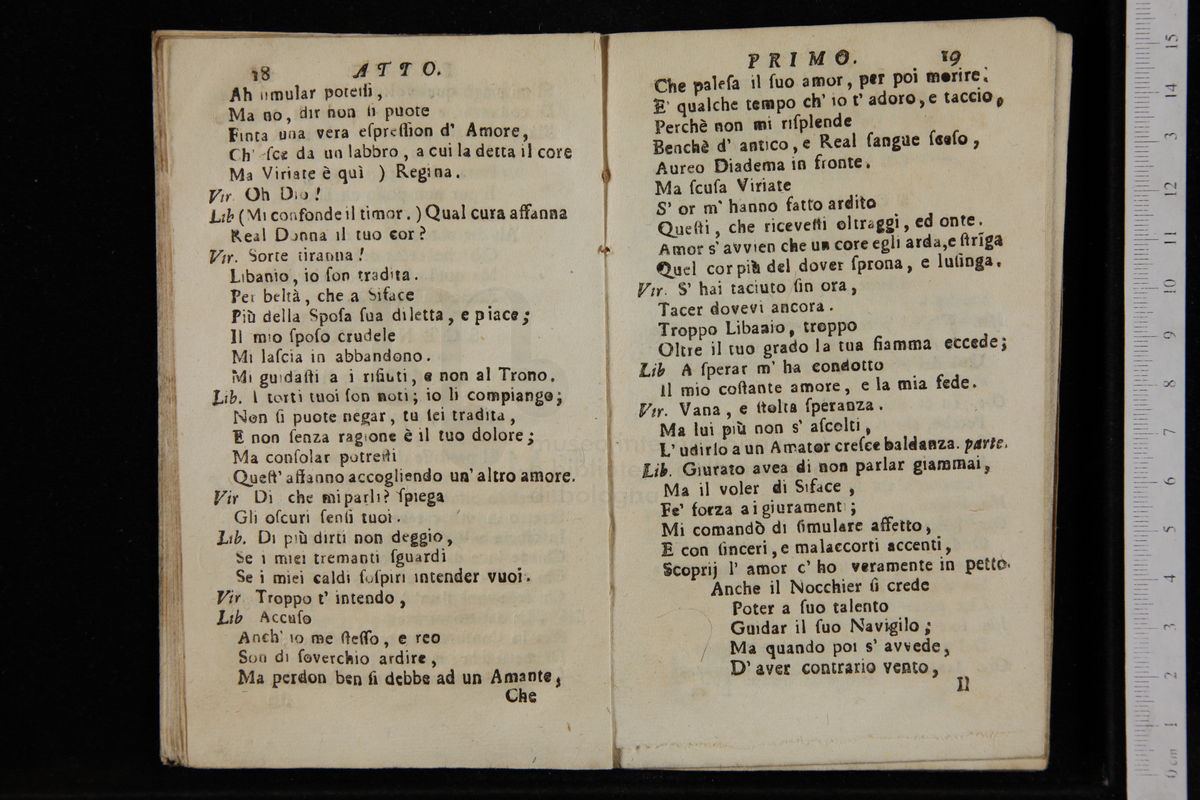 18 ATTO.
Ah simular potessi,
Ma no, dir non si puote
Finta una vera espression d' Amore,
Ch' esce da un labbro, a cui la detta il core
Ma Viriate è quì ) Regina.
Vir. Oh Dio!
Lib (Mi confonde il timor.) Qual cura affanna
Real Donna il tuo cor?
Vir. Sorte tiranna!
Libanio, io son tradita.
Per beltà, che a Siface
Più della Sposa sua diletta, e piace;
Il mio sposo crudele
Mi lascia in abbandono.
Mi guidasti a i rifiuti, e non al Trono.
Lib. I torti tuoi son noti; io li compiango;
Non si puote negar, tu sei tradita,
E non senza ragione è il tuo dolore;
Ma consolar potresti
Quest' affanno accogliendo un' altro amore.
Vir Di che mi parli? spiega
Gli oscuri sensi tuoi.
Lib. Di più dirti non deggio,
Se i miei tremanti sguardi
Se i miei caldi sospiri intender vuoi.
Vir Troppo t' intendo,
Lib Accuso
Anch' io me stesso, e reo
Son di soverchio ardire,
Ma perdon ben si debbe ad un Amante,
Che
PRIMO. 19
Che palesa il suo amor, per poi morire.
E' qualche tempo ch' io t' adoro, e taccio,
Perchè non mi risplende
Benchè d' antico, e Real sangue sceso,
Aureo Diadema in fronte.
Ma scusa Viriate
S' or m' hanno fatto ardito
Questi, che ricevesti oltraggi, ed onte.
Amor s' avvien che un core egli arda, e striga
Quel cor più del dover sprona, e lusinga.
Vir. S' hai taciuto sin ora,
Tacer dovevi ancora.
Troppo Libanio, troppo
Oltre il tuo grado la tua fiamma eccede;
Lib A sperar m' ha condotto
Il mio costante amore, e la mia fede.
Vir. Vana, e stolta speranza.
Ma lui più non s' ascolti,
L' udirlo a un Amator cresce baldanza. parte.
Lib. Giurato avea di non parlar giammai,
Ma il voler di Siface,
Fe' forza a i giuramenti;
Mi comandò di simulare affetto,
E con sinceri, e malaccorti accenti,
Scoprij l' amor c' ho veramente in petto.
Anche il Nocchier si crede
Poter a suo talento
Guidar il suo Navigilo;
Ma quando poi s' avvede,
D' aver contrario vento,
Il